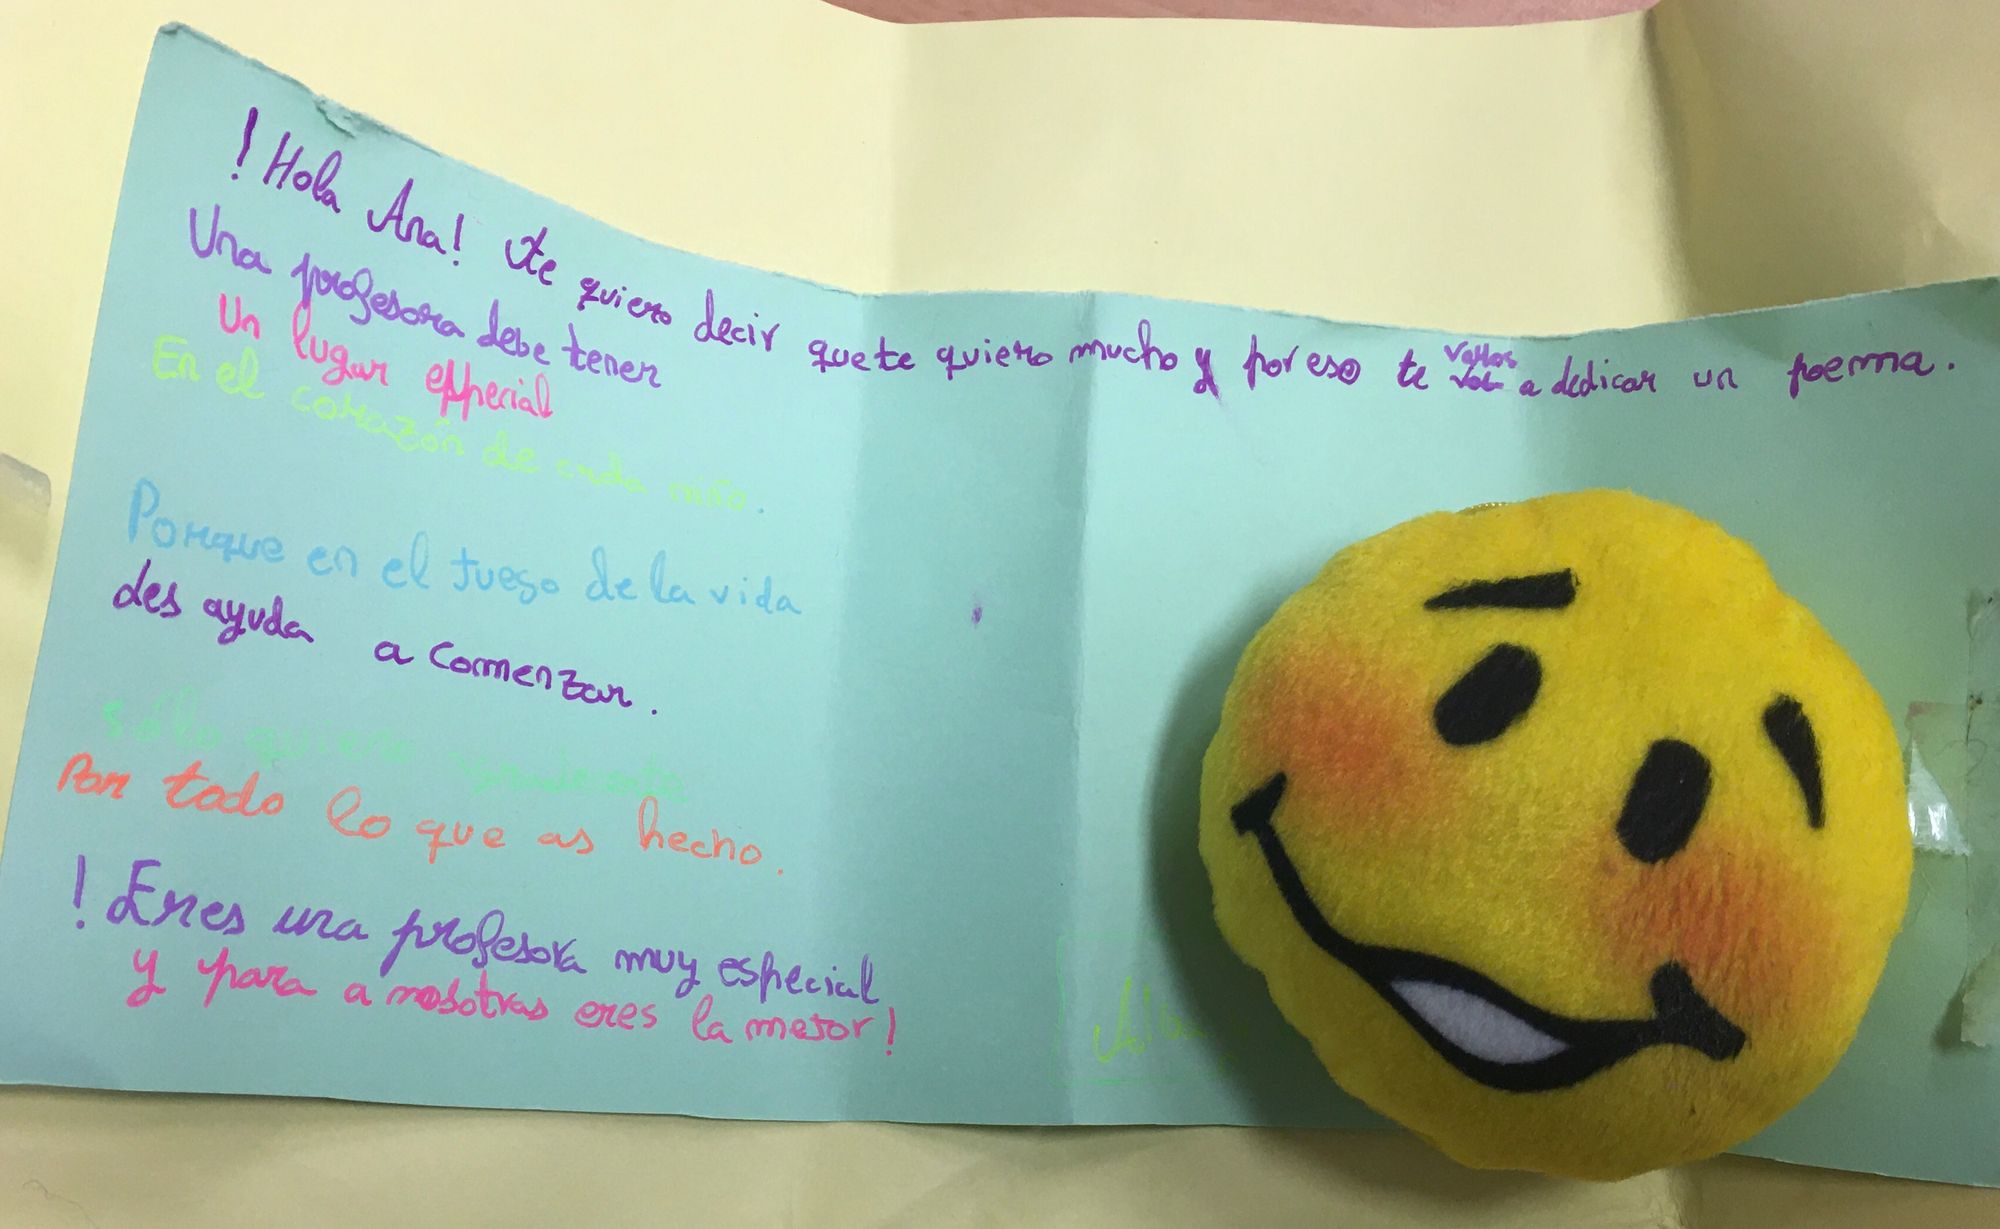 !Hola Ana! te quiero decir que te quiero mucho y por eso te vamos a dedicar un poema.
Una profesora debe tener
Un lugar especial
En el corazón de cada niño.
Porque en el juego de la vida
des ayuda a comenzar.
sólo quiero agradecerte
Por todo lo que as hecho.
! Eres una profesora muy especial
y para a nosotras eres la mejor!